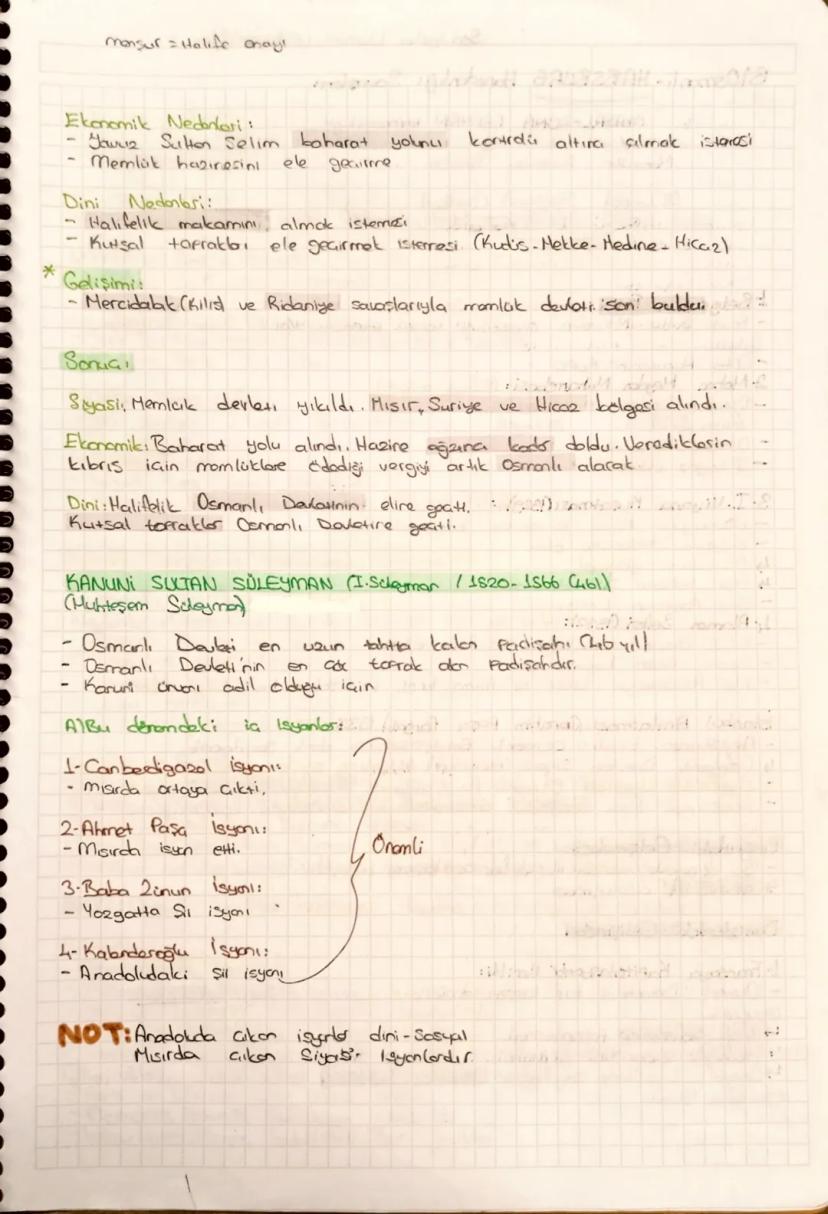 menşur = Halife onayı
Ekonomik Nedenleri:
- Yavuz Sultan Selim baharat yolunu kontrolü altına almak istemesi
- Memlük hazinesini ele geçirme
Dini Nedenleri:
- Halifelik makamını almak istemesi
- Kutsal toprakları ele geçirmek istemesi (Kudüs-Mekke-Medine-Hicaz)
* Gelişimi:
- Mercidabık (Kilis) ve Ridaniye savaşlarıyla memlük devleti son buldu.
Sonuç:
Siyasi: Memlük devleti yıkıldı. Mısır, Suriye ve Hicaz bölgesi alındı.
Ekonomik: Baharat yolu alındı. Hazine ağzına kadar doldu. Venediklerin
kıbrıs için memlüklere ödediği vergiyi artık Osmanlı alacak
Dini: Halifelik Osmanlı Devletinin eline geçti.
Kutsal topraklar Osmanlı Devletine geçti.
KANUNİ SULTAN SÜLEYMAN (I.Süleyman / 1520-1566 (46))
(Muhteşem Süleyman)
- Osmanlı Devleti en uzun tahtta kalan padişahı (46 yıl)
- Osmanlı Devleti'nin en çok toprak alan padişahdır.
- Kanuni ünvanı adil olduğu için
A) Bu dönemdeki iç isyanlar:
1-Canberdigazal isyanı:
- Mısırda ortaya çıktı.
2-Ahmet Paşa İsyanı:
- Mısırda isyan etti.
3-Baba Zünun İsyanı:
- Yozgatta Şii isyanı
4-Kalenderoğlu İsyanı:
- Anadoludaki şii isyanı
Önemli
NOT: Anadoluda çıkan isyanlar dini-Sosyal
Mısırda çıkan Siyasi isyanlardır